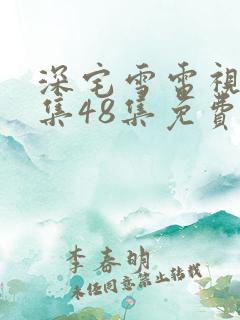 深宅雪電視
集48集免費
李春明
未经同意禁止转载